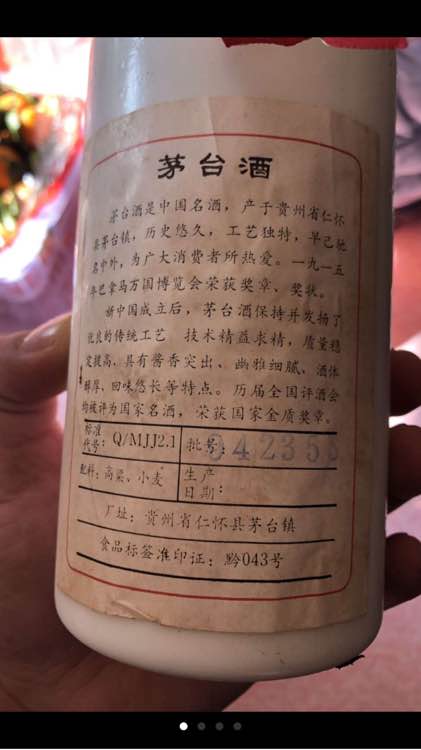 茅台酒
茅台酒是中国名酒，产于贵州省仁怀
县茅台镇，历史悠久，工艺独特，早已驰
名中外，为广大消费者所热爱。一九一五
年巴拿马万国博览会荣获奖章、奖状。
新中国成立后，茅台酒保持并发扬了
优良的传统工艺 技术精益求精，质量稳
定提高、具有酱香突出、幽雅细腻、酒体
醇厚、回味悠长等特点。历届全国评酒会
均被评为国家名酒，荣获国家金质奖章。
标准
代号：Q/MJJ2.1 批号：
配料：高粱、小麦 生产
日期：
厂址：贵州省仁怀县茅台镇
食品标签准印证：黔043号